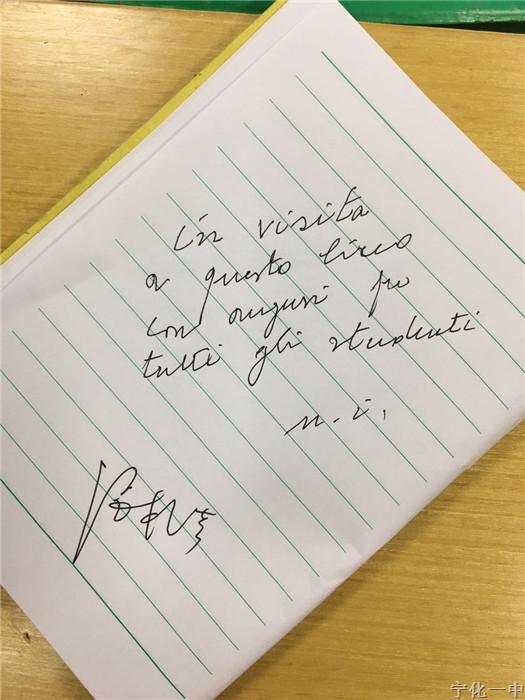 in visita
a questo liceo
con auguri per
tutti gli studenti
n. i.
宁化一中